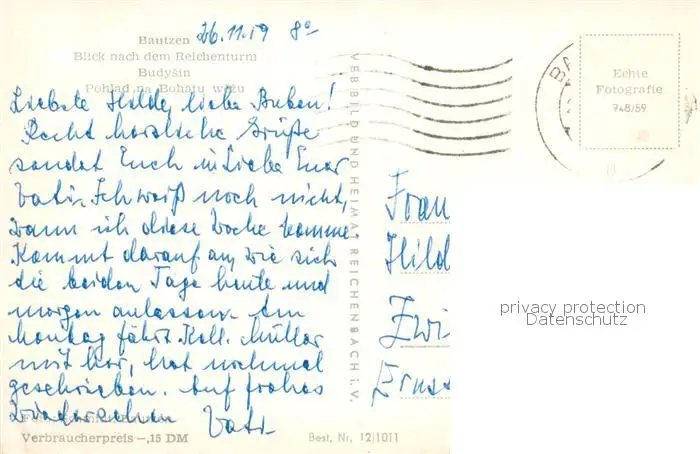 26.11.59 8°
Bautzen
Blick nach dem Reichenturm
Budyšin
Pohlad na Bohatu wěžu
Liebste Hilde, liebe Buben!
Recht herzliche Grüße
sendet Euch in Liebe Euer
Vati. Ich weiß noch nicht,
wann ich diese Woche komme.
Kommt darauf an, wie sich
die beiden Tage heute und
morgen anlassen. Am
Montag fährt Koll. Müller
mit her, hat nochmal
geschrieben. Auf frohes
Wiedersehen Vati
Verbraucherpreis -,15 DM
Best. Nr. 12/1011
VEB BILD UND HEIMAT REICHENBACH i. V.
Echte
Fotografie
948/59
Frau
Hild
Zwi
Ernst
privacy protection
Datenschutz